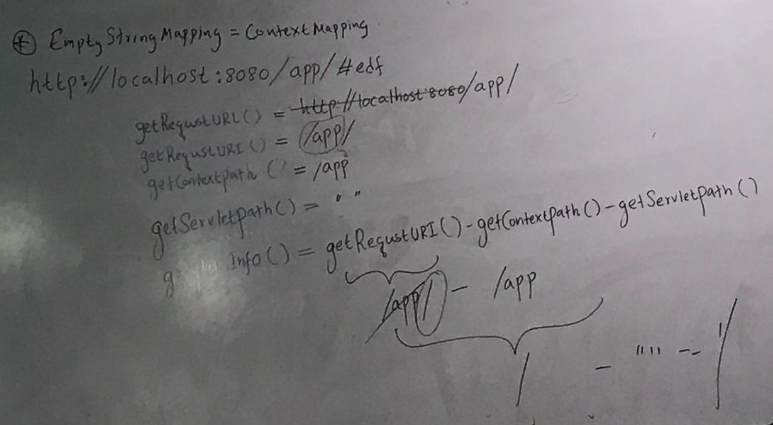 * EmptyStringMapping = ContextMapping
http://localhost:8080/app/#edf
getRequstURL() = http://localhost:8080/app/
getRequstURI() = /app/
getContextpath () = /app
getServletpath() = " "
g Info() = getRequstURI() - getContextpath() - getServletpath()
/app/ - /app
/ - "" -- /